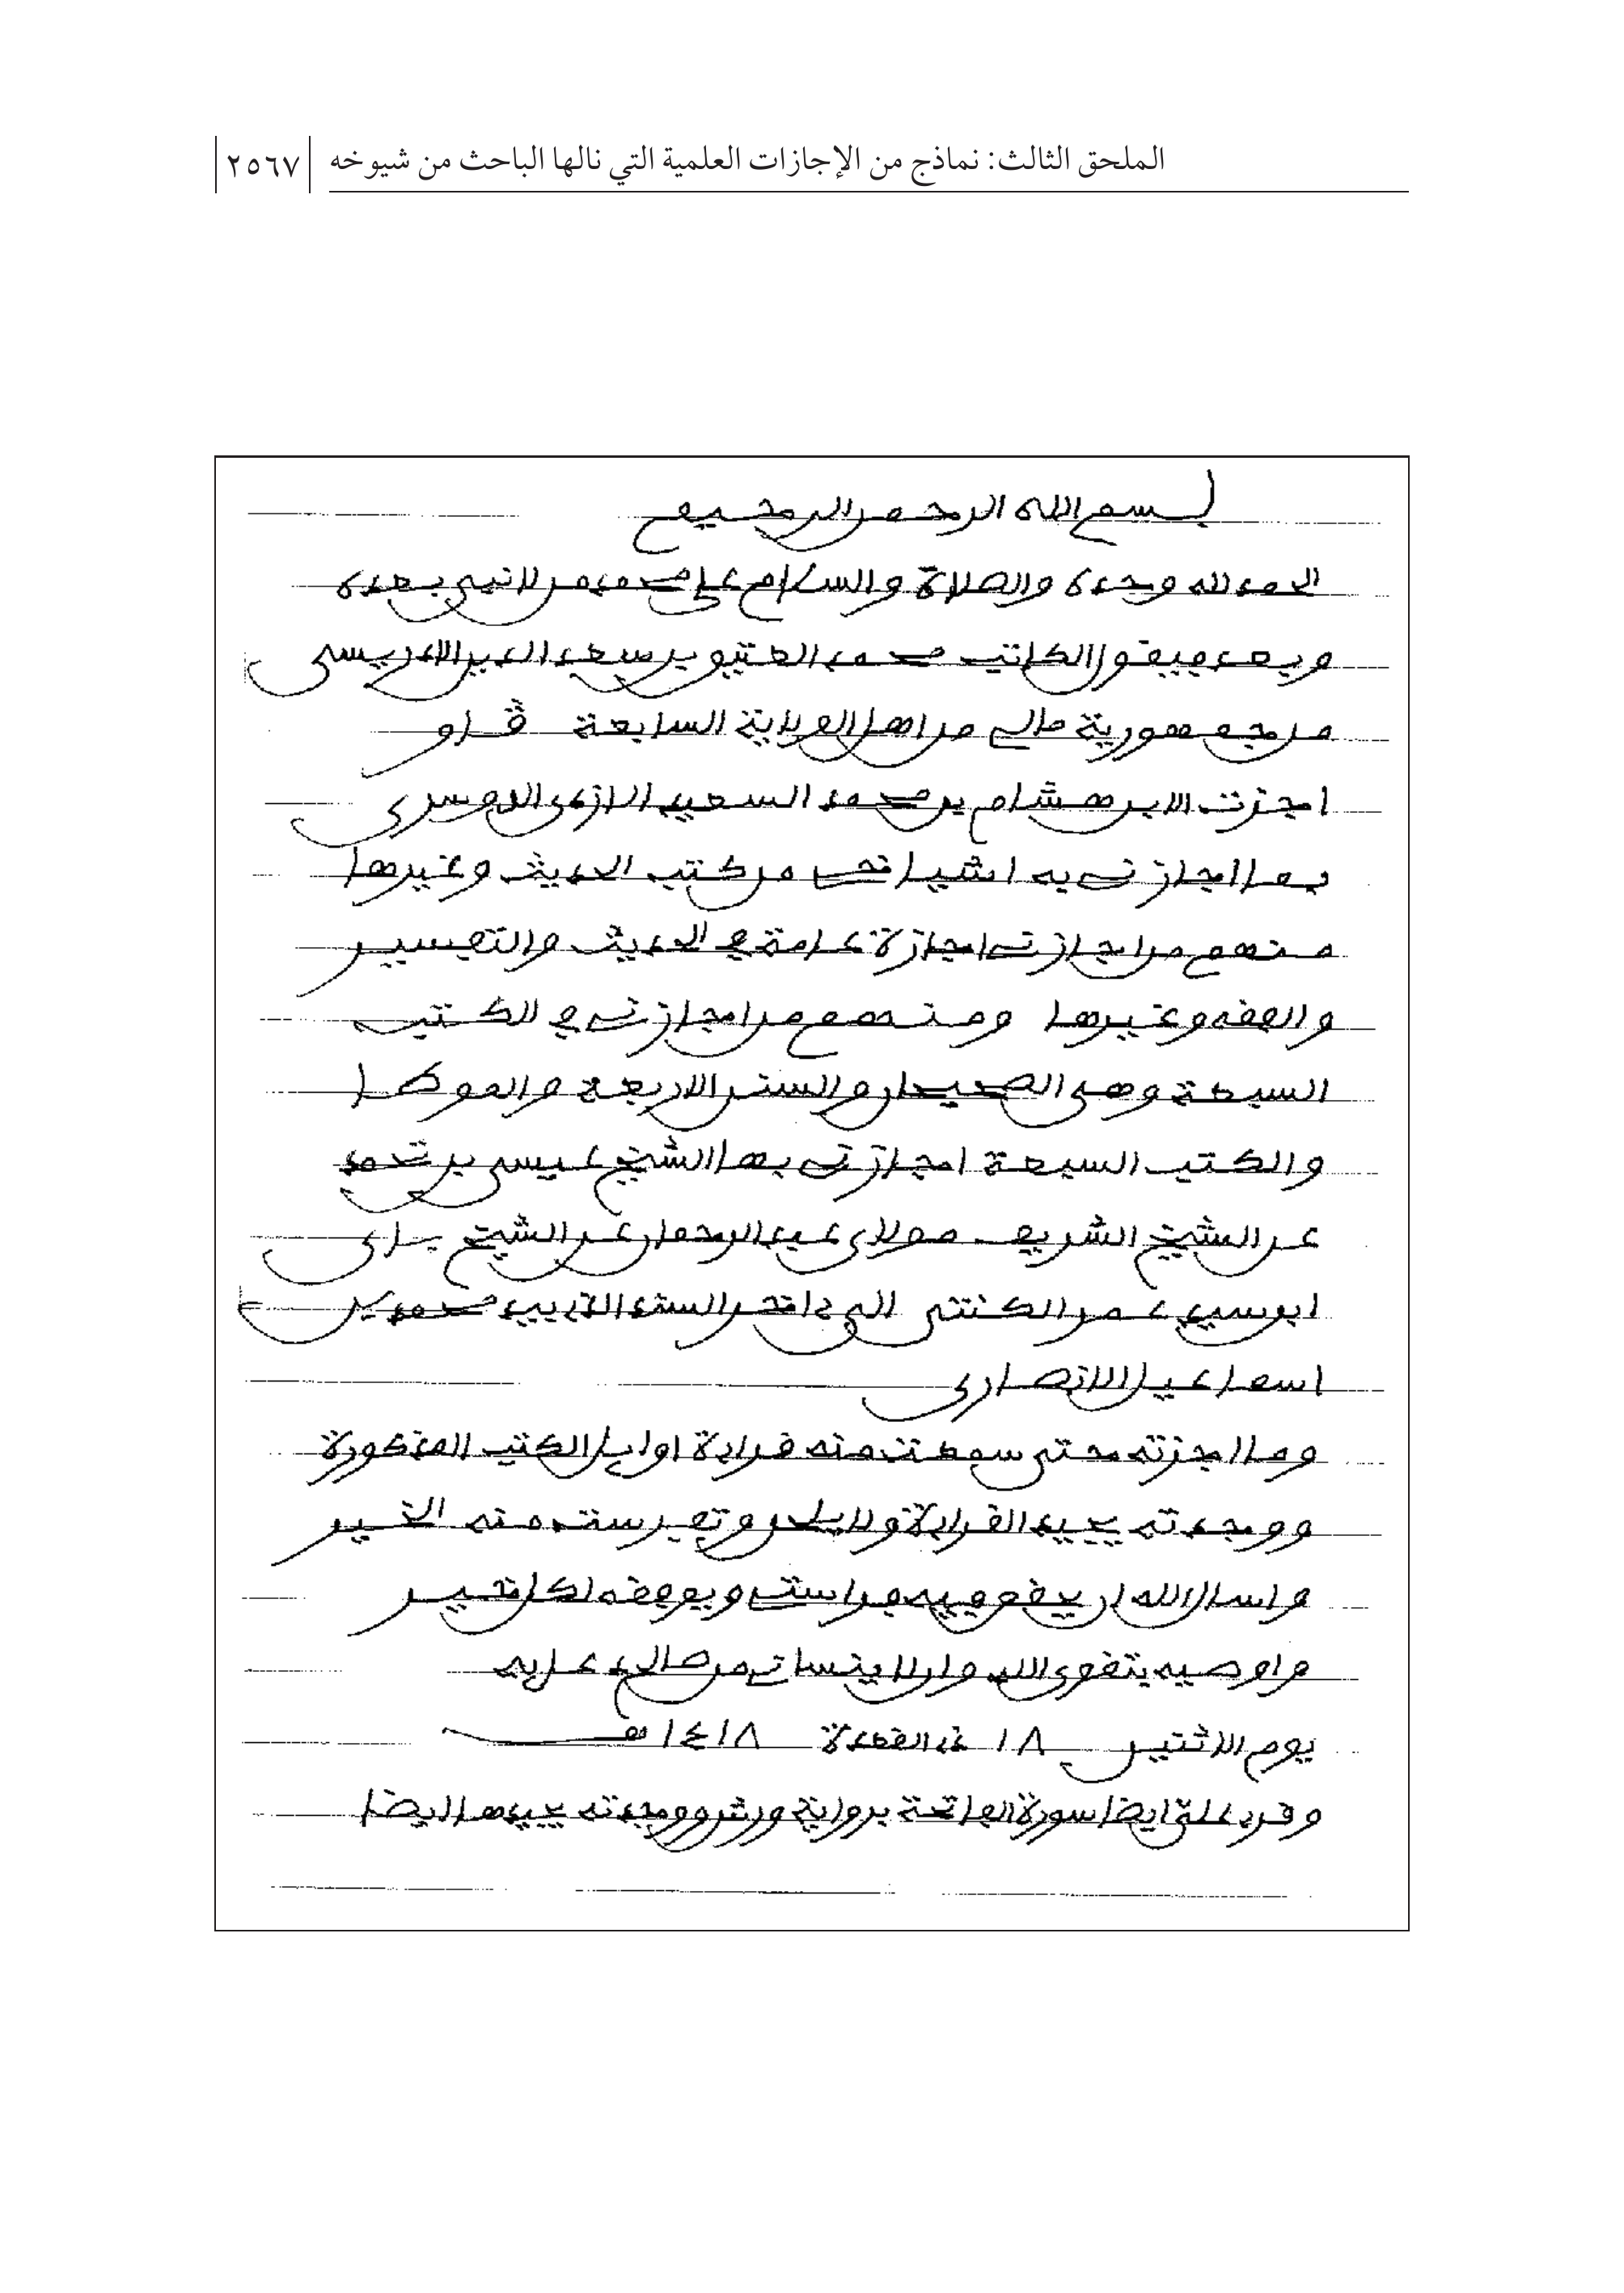 الملحق الثالث: نماذج من الإجازات العلمية التي نالها الباحث من شيوخه ٢٥٦٧
بسم الله الرحمن الرحيم
الحمد لله وحده والصلاة والسلام على محمد من لا نبي بعده
وبعد فيقول الكاتب محمد العتيق بن سعد الدين الادريسي
من جمهورية مالي من اهل الولاية السابعة ڤاو
اجزت لابن هشام بن محمد السعيد الازدي الدوسري
بما اجازني به اشياخنا من كتب الحديث وغيرها
منهم من اجازني اجازة عامة في الحديث والتفسير
والفقه وغيرها ومنهم من اجازني في الكتب
الستة وهي الصحيحان والسنن الاربعة والموطا
والكتب السبعة اجازني بها الشيخ عيسى بن تحمد
عن الشيخ الشريف مولاي عبد الرحمان عن الشيخ باي
ابو سيدي عمر الكنتي الى داخر السند الاديب محمد بن
اسماعيل الانصاري
وما اجزته حتى سمعت منه قراءة اوايل الكتب المذكورة
ووجدته يجيد القراءة ولا يلحن وتفرست منه الخير
واسال الله ان ينفع فيه فراستي ويوفقه لكل خير
واوصيه بتقوى الله وان لا ينساني من صالح دعايه
يوم الاثنين ١٨ ذي القعدة ١٤١٨ هـ
وقرء علي ايضا سورة الفاتحة برواية ورش ووجدته يجيدها ايضا